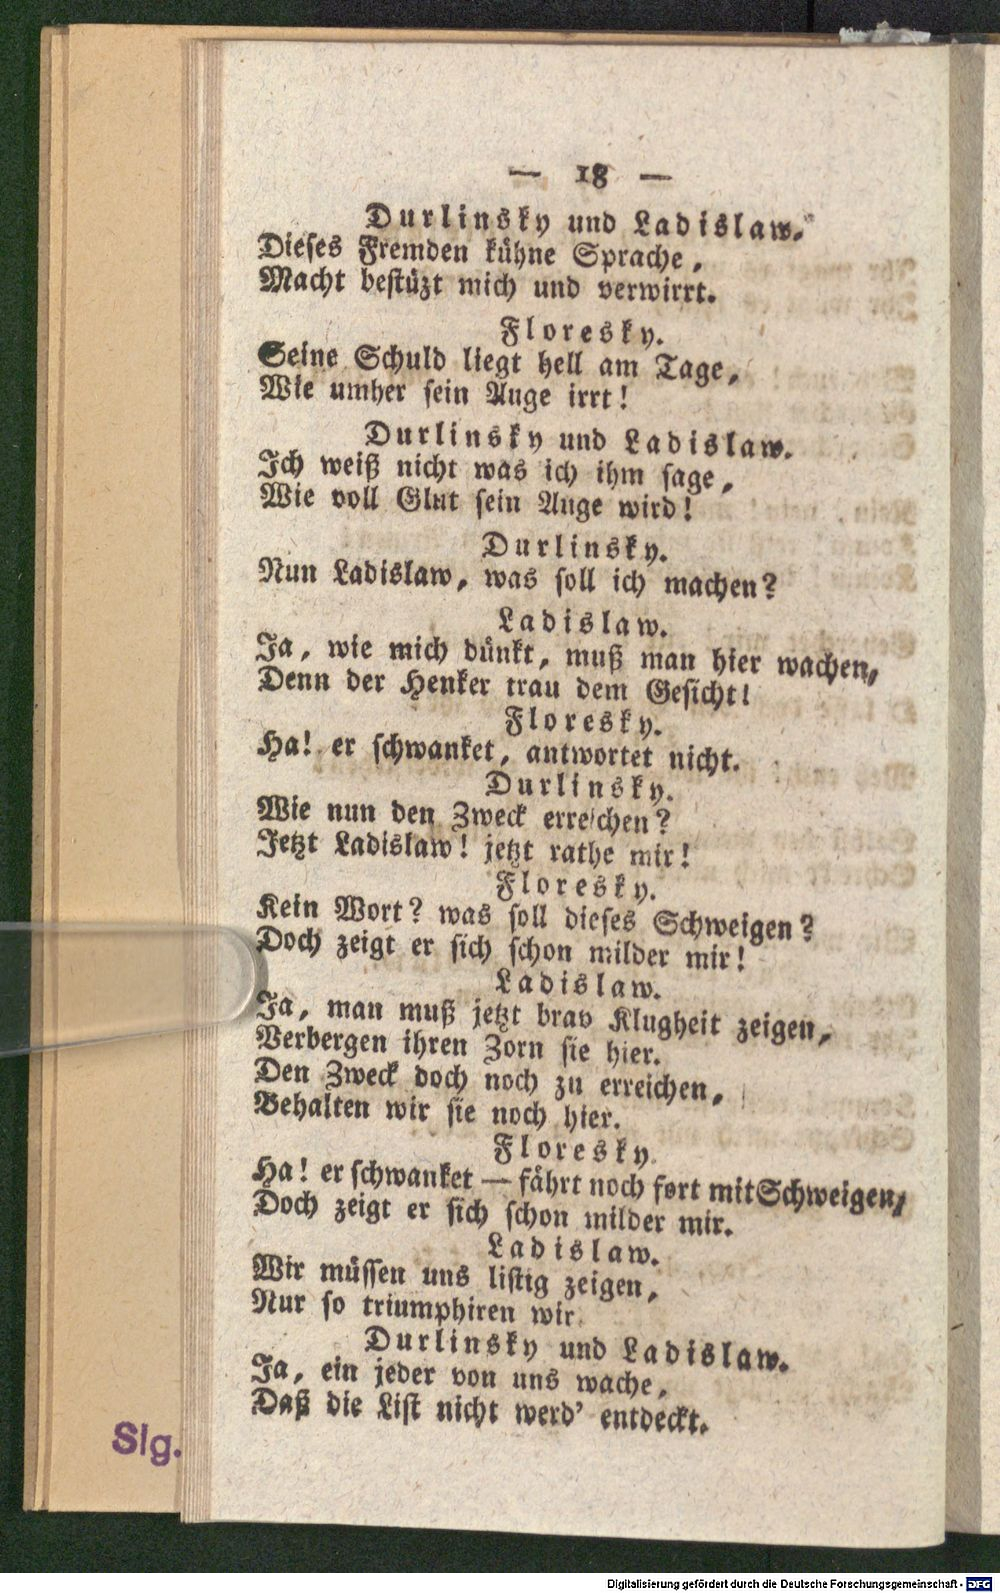 — 18 —
Durlinsky und Ladislaw.
Dieses Fremden kühne Sprache,
Macht bestüzt mich und verwirrt.
Floresky.
Seine Schuld liegt hell am Tage,
Wie umher sein Auge irrt!
Durlinsky und Ladislaw.
Ich weiß nicht was ich ihm sage,
Wie voll Glut sein Auge wird!
Durlinsky.
Nun Ladislaw, was soll ich machen?
Ladislaw.
Ja, wie mich dünkt, muß man hier wachen,
Denn der Henker trau dem Gesicht!
Floresky.
Ha! er schwanket, antwortet nicht.
Durlinsky.
Wie nun den Zweck erreichen?
Jetzt Ladislaw! jetzt rathe mir!
Floresky.
Kein Wort? was soll dieses Schweigen?
Doch zeigt er sich schon milder mir!
Ladislaw.
Ja, man muß jetzt brav Klugheit zeigen,
Verbergen ihren Zorn sie hier.
Den Zweck doch noch zu erreichen,
Behalten wir sie noch hier.
Floresky.
Ha! er schwanket — fährt noch fort mit Schweigen,
Doch zeigt er sich schon milder mir.
Ladislaw.
Wir müssen uns listig zeigen,
Nur so triumphiren wir.
Durlinsky und Ladislaw.
Ja, ein jeder von uns wache,
Daß die List nicht werd' entdeckt.
Slg.
Digitalisierung gefördert durch die Deutsche Forschungsgemeinschaft - DFG